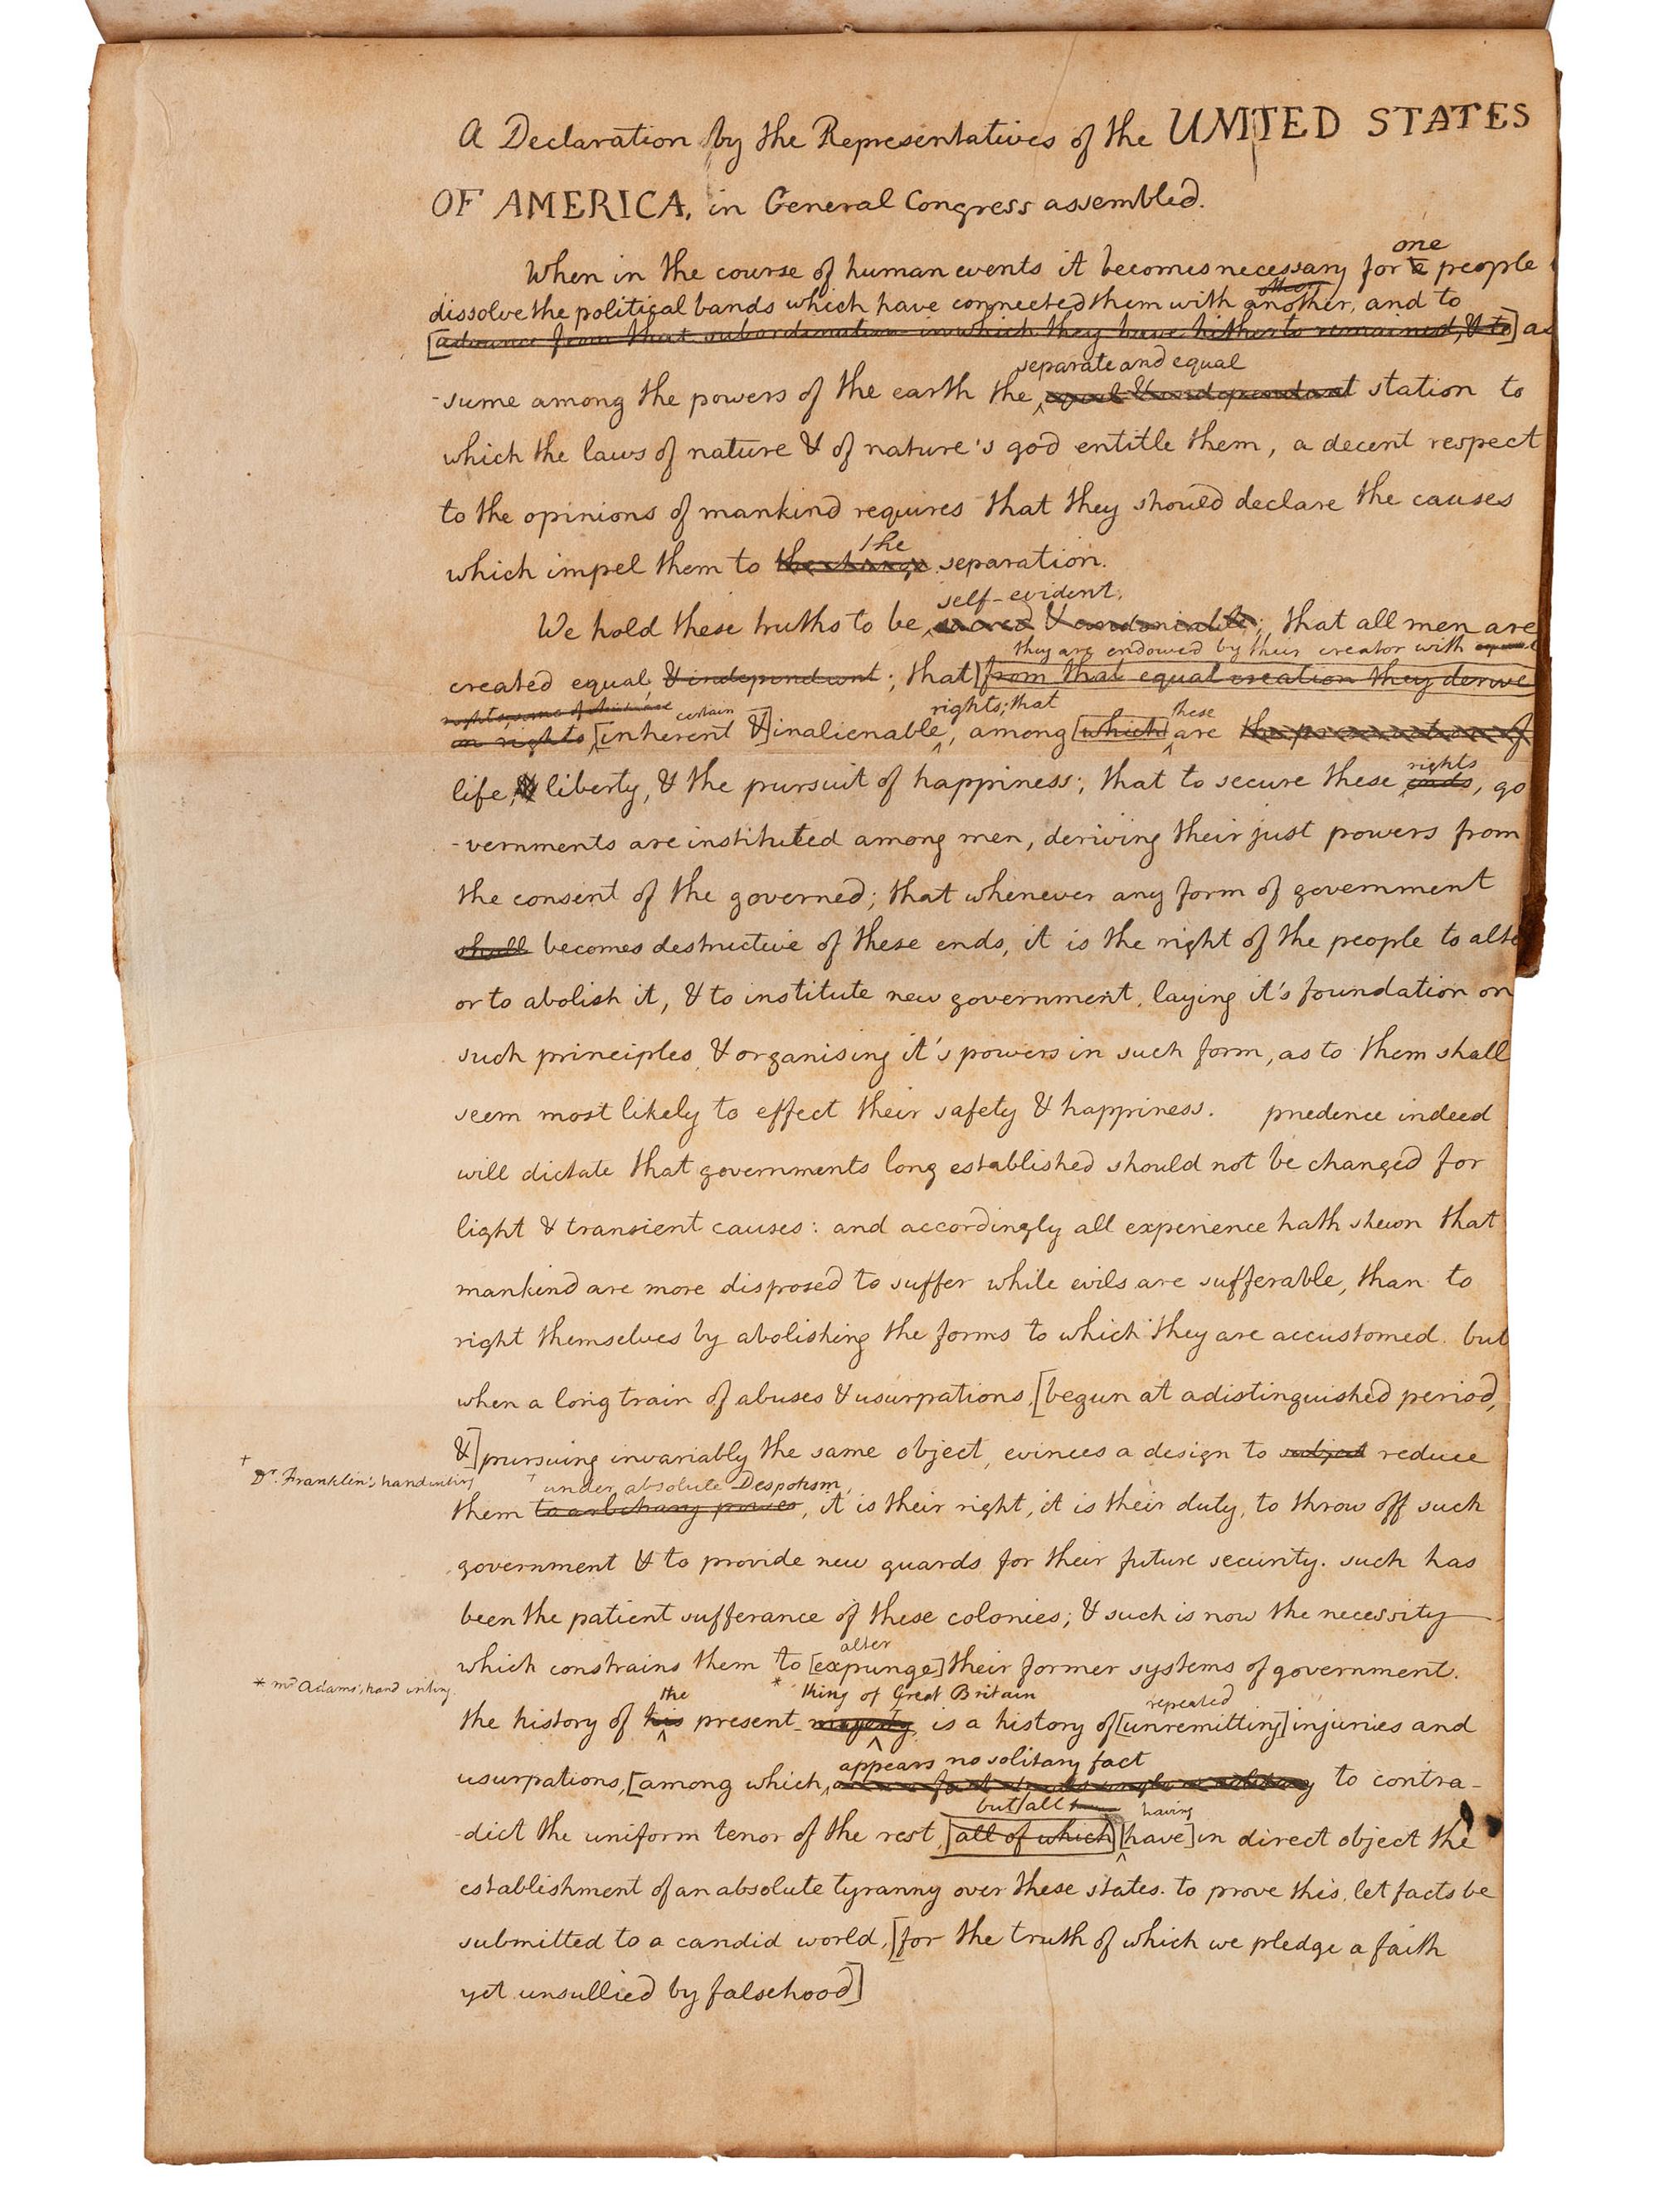 A Declaration by the Representatives of the UNITED STATES
OF AMERICA, in General Congress assembled.
one
When in the course of human events it becomes necessary for a people
dissolve the political bands which have connected them with another, and to
[advance from that subordination in which they have hitherto remained, & to] as
separate and equal
-sume among the powers of the earth the equal & independant station to
which the laws of nature & of nature's god entitle them, a decent respect
to the opinions of mankind requires that they should declare the causes
the
which impel them to the change separation.
self-evident,
We hold these truths to be sacred & undeniable; that all men are
they are endowed by their creator with
created equal & independant; that [from that equal creation they derive
rights, some of which are certain rights; that these
in rights [inherent &] inalienable, among [which] are the preservation of
rights
life, & liberty, & the pursuit of happiness; that to secure these ends, go
-vernments are instituted among men, deriving their just powers from
the consent of the governed; that whenever any form of government
shall becomes destructive of these ends, it is the right of the people to alte
or to abolish it, & to institute new government, laying it's foundation on
such principles & organising it's powers in such form, as to them shall
seem most likely to effect their safety & happiness. prudence indeed
will dictate that governments long established should not be changed for
light & transient causes: and accordingly all experience hath shewn that
mankind are more disposed to suffer while evils are sufferable, than to
right themselves by abolishing the forms to which they are accustomed. but
when a long train of abuses & usurpations, [begun at a distinguished period,
&] pursuing invariably the same object, evinces a design to subject reduce
† Dr. Franklin's handwriting † under absolute Despotism,
them to arbitrary power, it is their right, it is their duty, to throw off such
government & to provide new guards for their future security. such has
been the patient sufferance of these colonies; & such is now the necessity
alter
which constrains them to [expunge] their former systems of government.
* mr Adams's hand writing the * king of Great Britain repeated
the history of his present majesty is a history of [unremitting] injuries and
appears no solitary fact
usurpations, [among which, to contra-
but all having
-dict the uniform tenor of the rest, [all of which] [have] in direct object the
establishment of an absolute tyranny over these states. to prove this, let facts be
submitted to a candid world, [for the truth of which we pledge a faith
yet unsullied by falsehood]